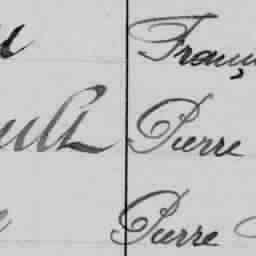 Franç
ult Pierre
Pierre